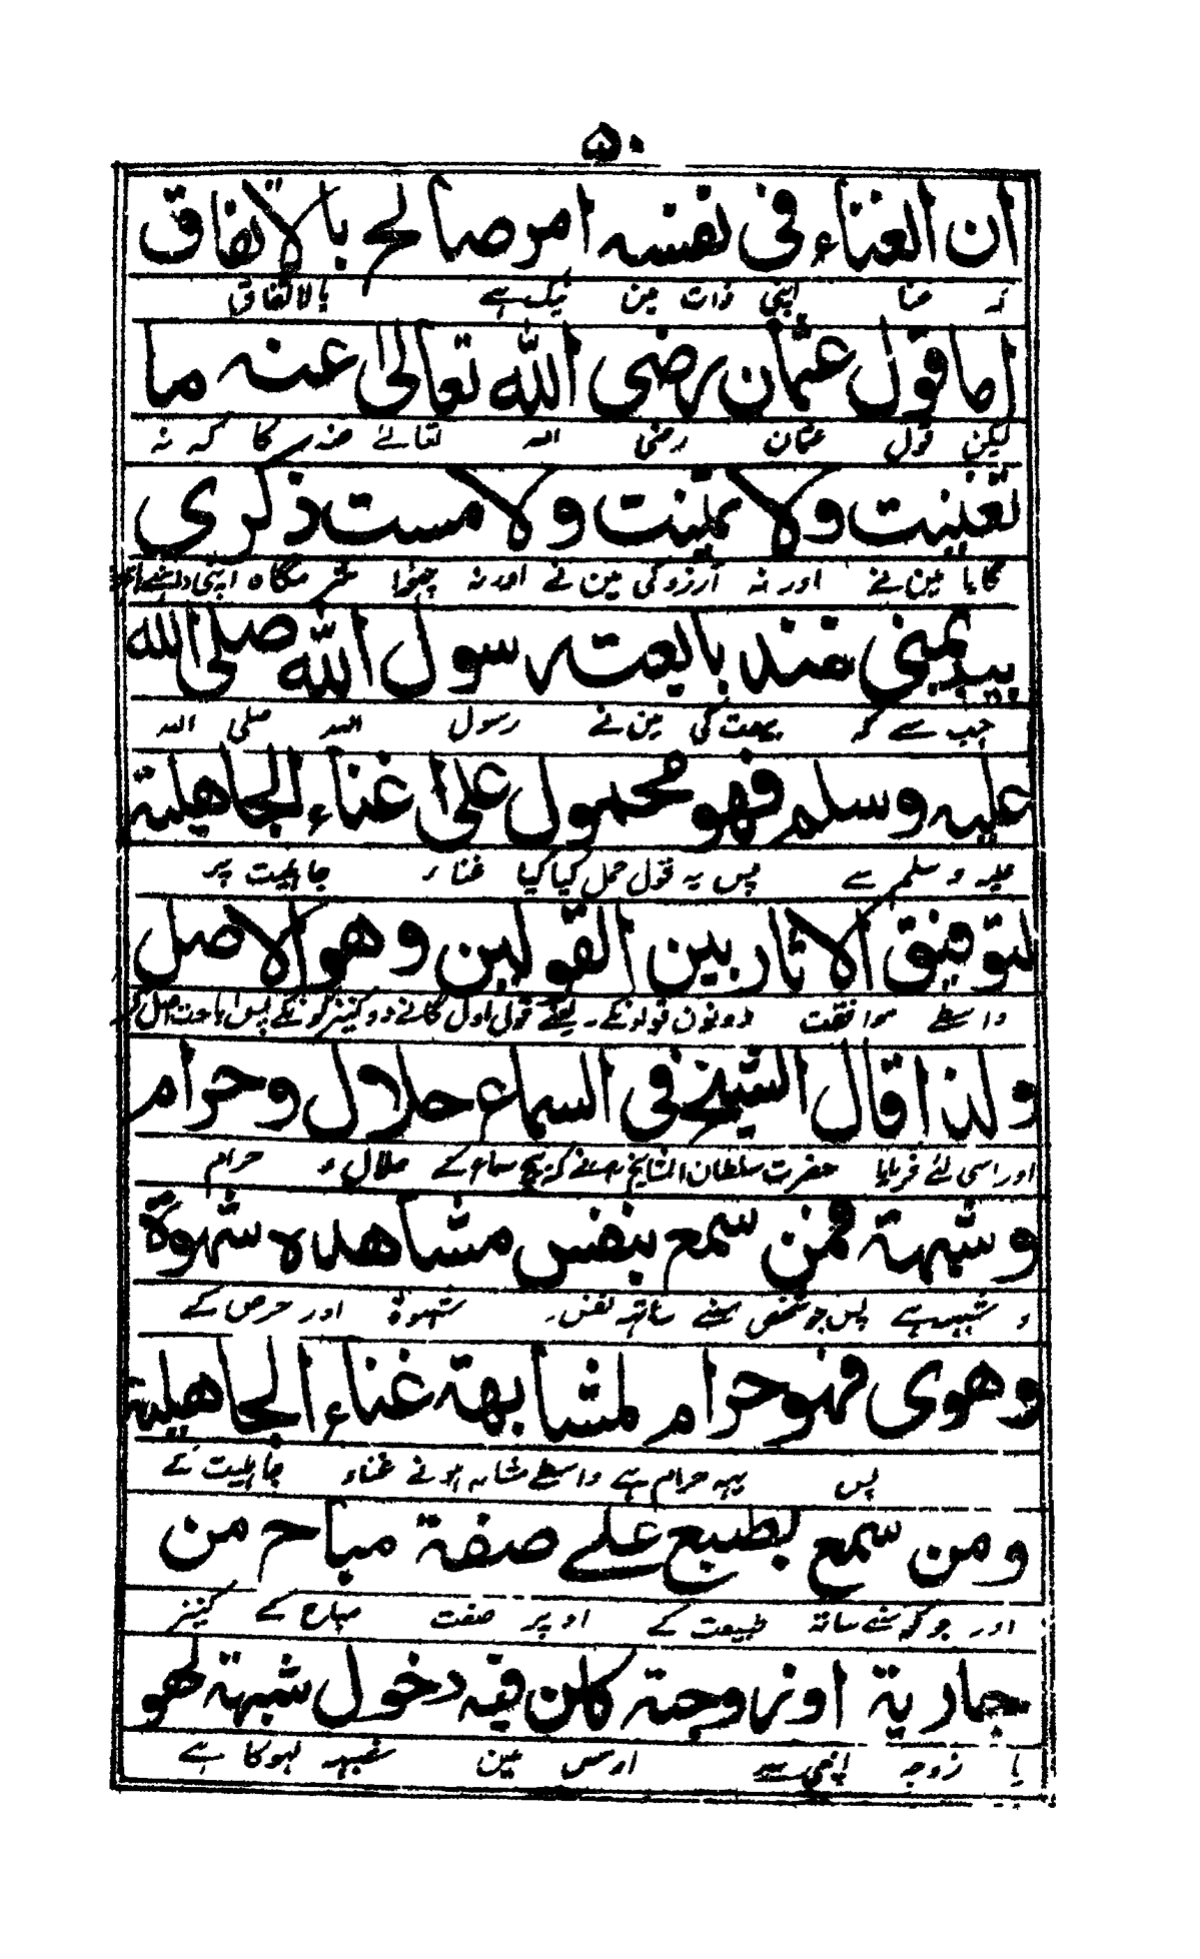 ۵۰
ان الغناء فی نفسه امر صالح بالاتفاق
نہ غنا اپنی ذات مین نیک ہے بالاتفاق
اما قول عثمان رضی الله تعالیٰ عنه ما
لیکن قول عثمان رضی اللہ تعالےٰ عنہ کا کہ نہ
تغنیت ولا تمنیت ولا مست ذکری
گایا مین نے اور نہ آرزو کی مین نے اور نہ چھوا ستر مگاہ اپنی داہنے
بیدیمینی منذ بایعت رسول الله صلی الله
جب سے کہ بیعت کی مین نے رسول اللہ صلی اللہ
علیه وسلم فهو محمول علیٰ غناء الجاهلیة
علیہ و سلم سے پس یہ قول حمل کیا گیا غناء جاہلیت پر
لتوفیق الاثار بین القولین وهو الاصل
واسطے موافقت دونون قولونکے قول اول گانے دو کنیز کونکے پس اباحت اصل
ولذا قال الشیخ فی السماع حلال وحرام
اور اسی لئے فرمایا حضرت سلطان المشایخ نے کہ بیچ سماع کے حلال و حرام
وشبهة فمن سمع بنفس مشاهده شهوة
و شبہہ ہے پس جو شخص سنے ساتھ نفس شہوة اور حرص کے
وهوی فهو حرام لمشابهة غناء الجاهلیة
پس یہہ حرام ہے واسطے مشابہ ہونے غناء جاہلیت کے
ومن سمع بطبع علے صفة مباح من
اور جو کہ سنے ساتہ طبیعت کے اوپر صفت مباح کے کنیز
جاریة او زوجته کان فیه دخول شبهة لهو
یا زوجہ اپنی سے اوس مین شبہہ لہو کا ہے